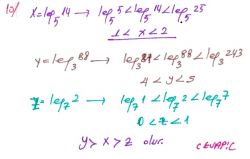 10) x = log₅14 → log₅5 < log₅14 < log₅25
1 < x < 2
y = log₃88 → log₃81 < log₃88 < log₃243
4 < y < 5
z = log₇2 → log₇1 < log₇2 < log₇7
0 < z < 1
y > x > z olur.
CEVAP: C